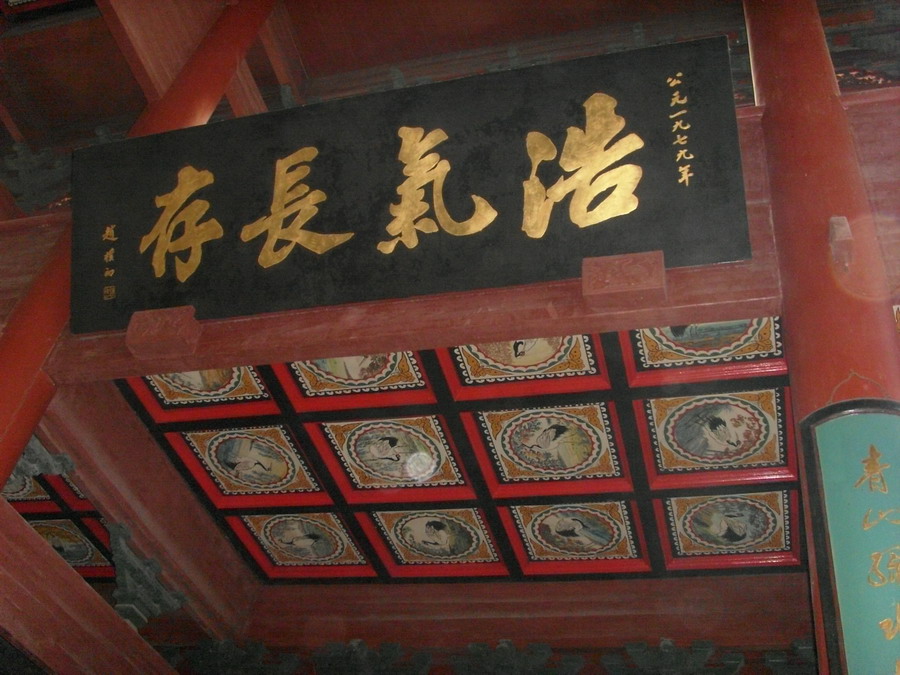 公元一九七九年
浩氣長存
趙樸初
青山